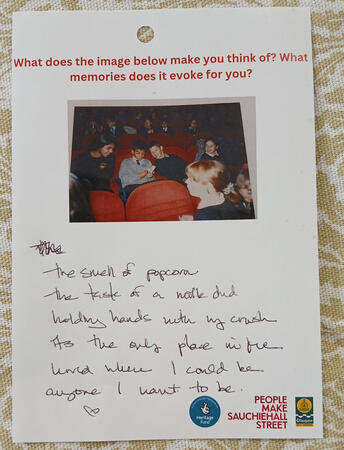 What does the image below make you think of? What
memories does it evoke for you?
the smell of popcorn
the taste of a milk dud
holding hands with my crush
its the only place in the
world where I could be
anyone I want to be.
Heritage
Fund
PEOPLE
MAKE
SAUCHIEHALL
STREET